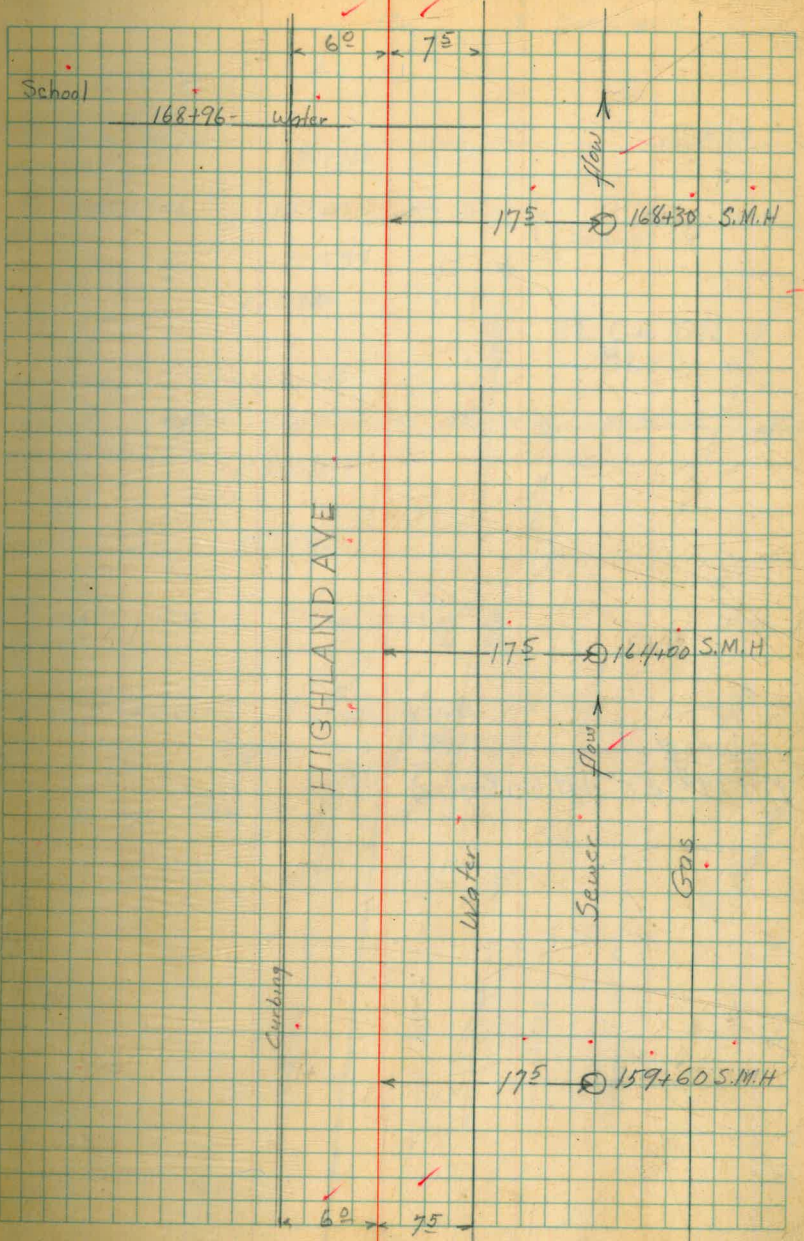 6⁰ 7⁵
School
168+96- Water
flow
17⁵ 168+30 S.M.H
HIGHLAND AVE
17⁵ 164+00 S.M.H
flow
Water
Sewer
Gas
Curbing
17⁵ 159+60 S.M.H
6⁰ 7⁵